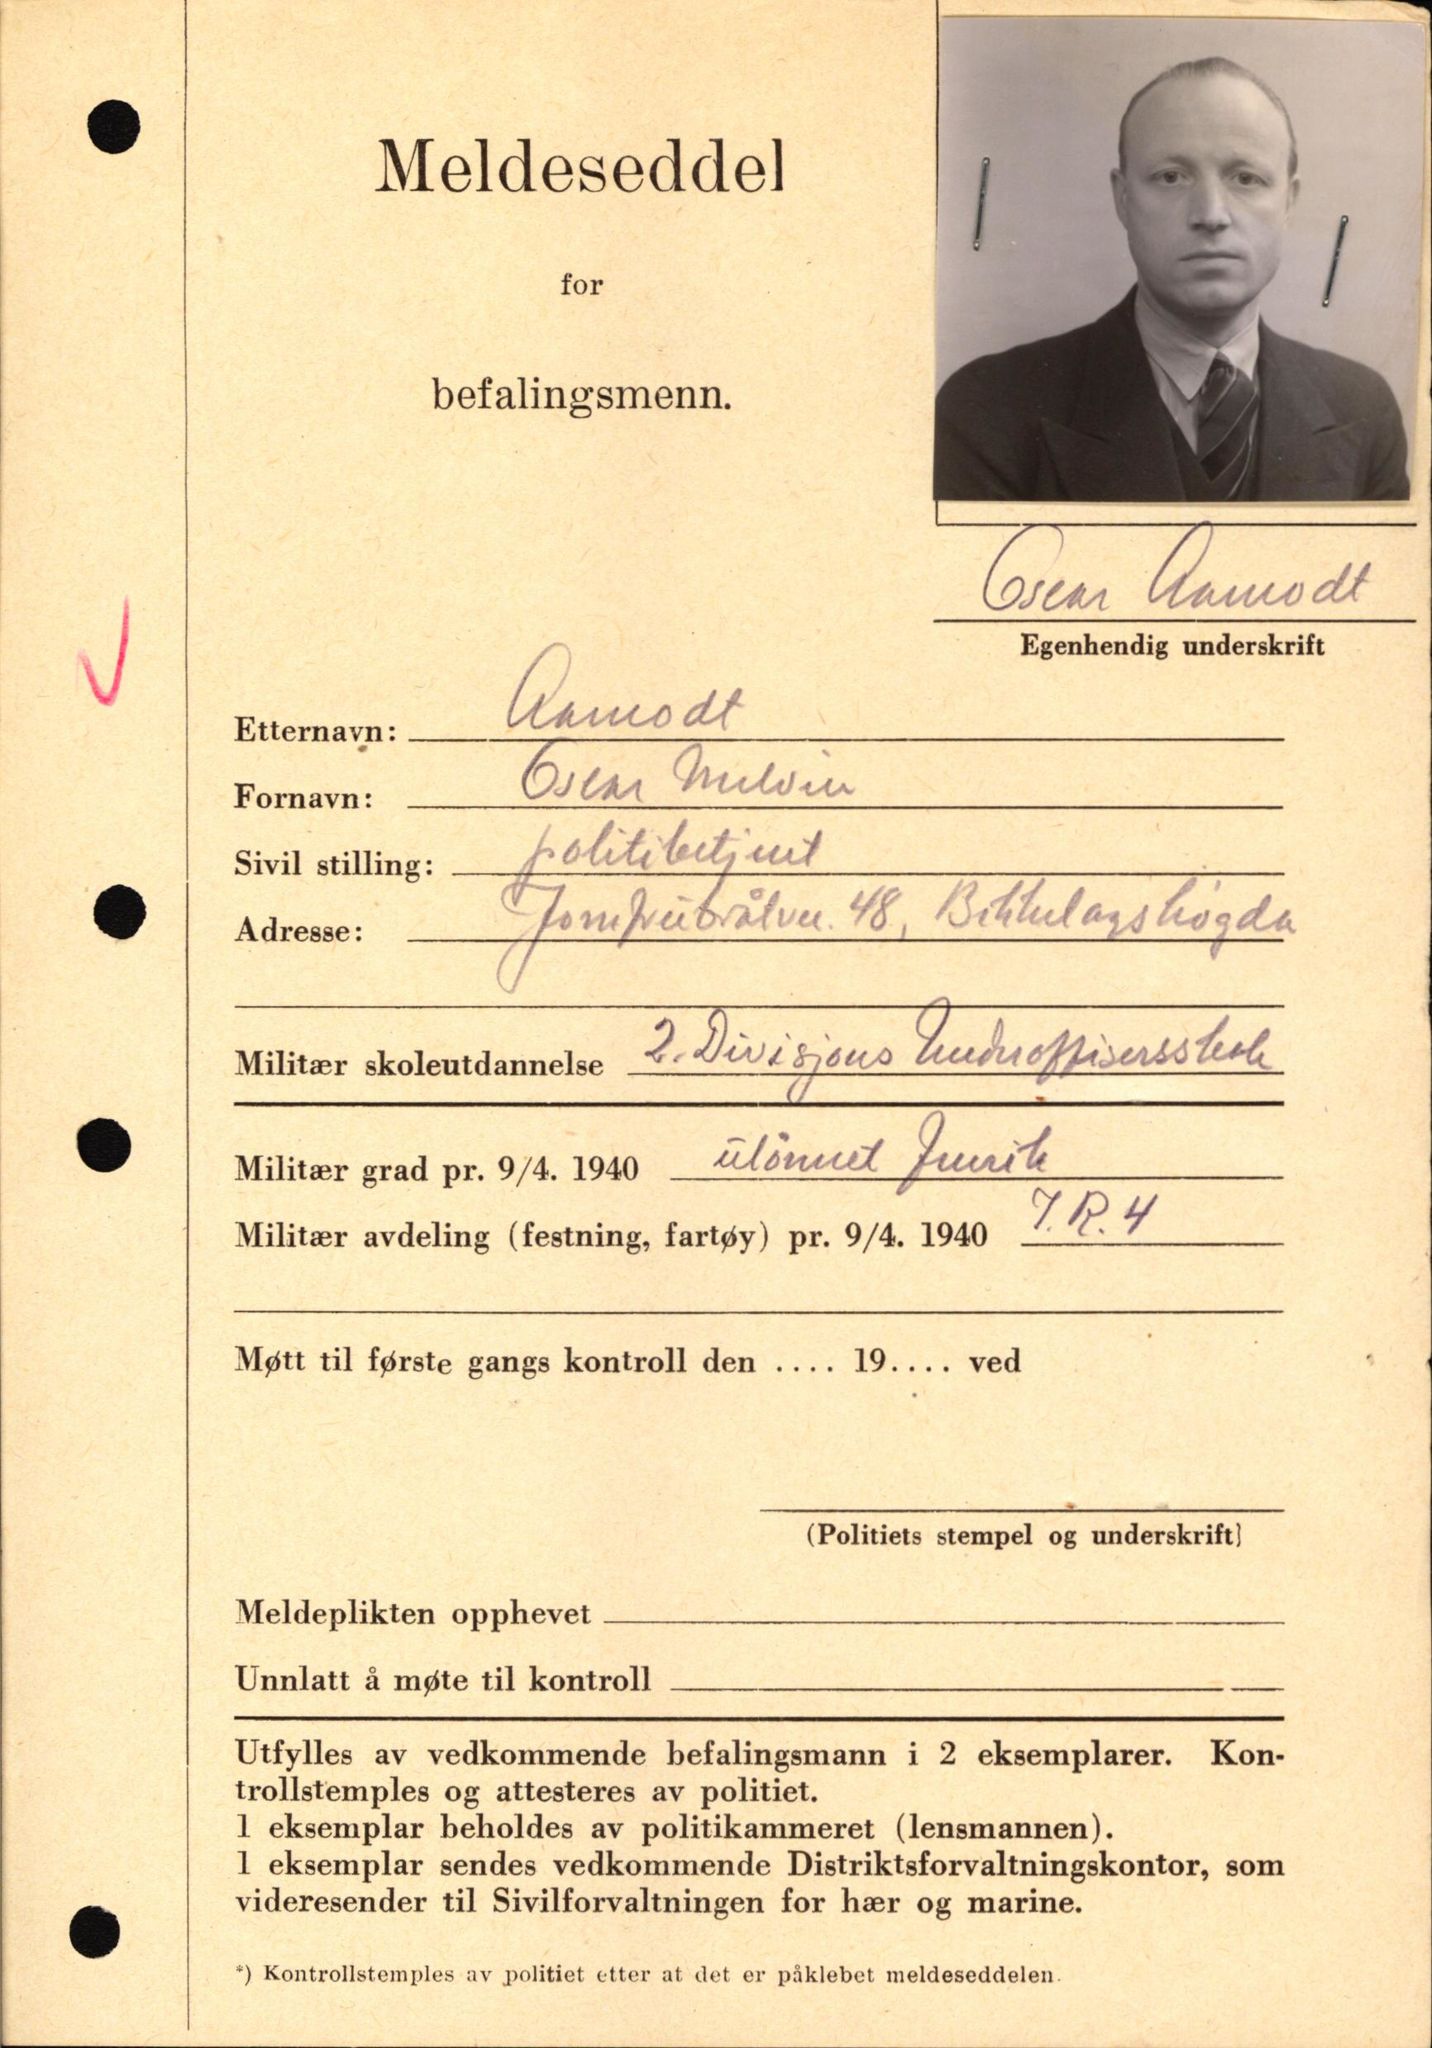 Meldeseddel
for
befalingsmenn.
Oscar Aamodt
Egenhendig underskrift
Etternavn: Aamodt
Fornavn: Oscar Melvin
Sivil stilling: politibetjent
Adresse: Jomfrubråtvn. 48, Bekkelagshøgda
Militær skoleutdannelse 2. Divisjons Underoffisersskole
Militær grad pr. 9/4. 1940 ulønnet Fenrik
Militær avdeling (festning, fartøy) pr. 9/4. 1940 I.R.4
Møtt til første gangs kontroll den .... 19.... ved
(Politiets stempel og underskrift)
Meldeplikten opphevet
Unnlatt å møte til kontroll
Utfylles av vedkommende befalingsmann i 2 eksemplarer. Kon-
trollstemples og attesteres av politiet.
1 eksemplar beholdes av politikammeret (lensmannen).
1 eksemplar sendes vedkommende Distriktsforvaltningskontor, som
videresender til Sivilforvaltningen for hær og marine.
*) Kontrollstemples av politiet etter at det er påklebet meldeseddelen.